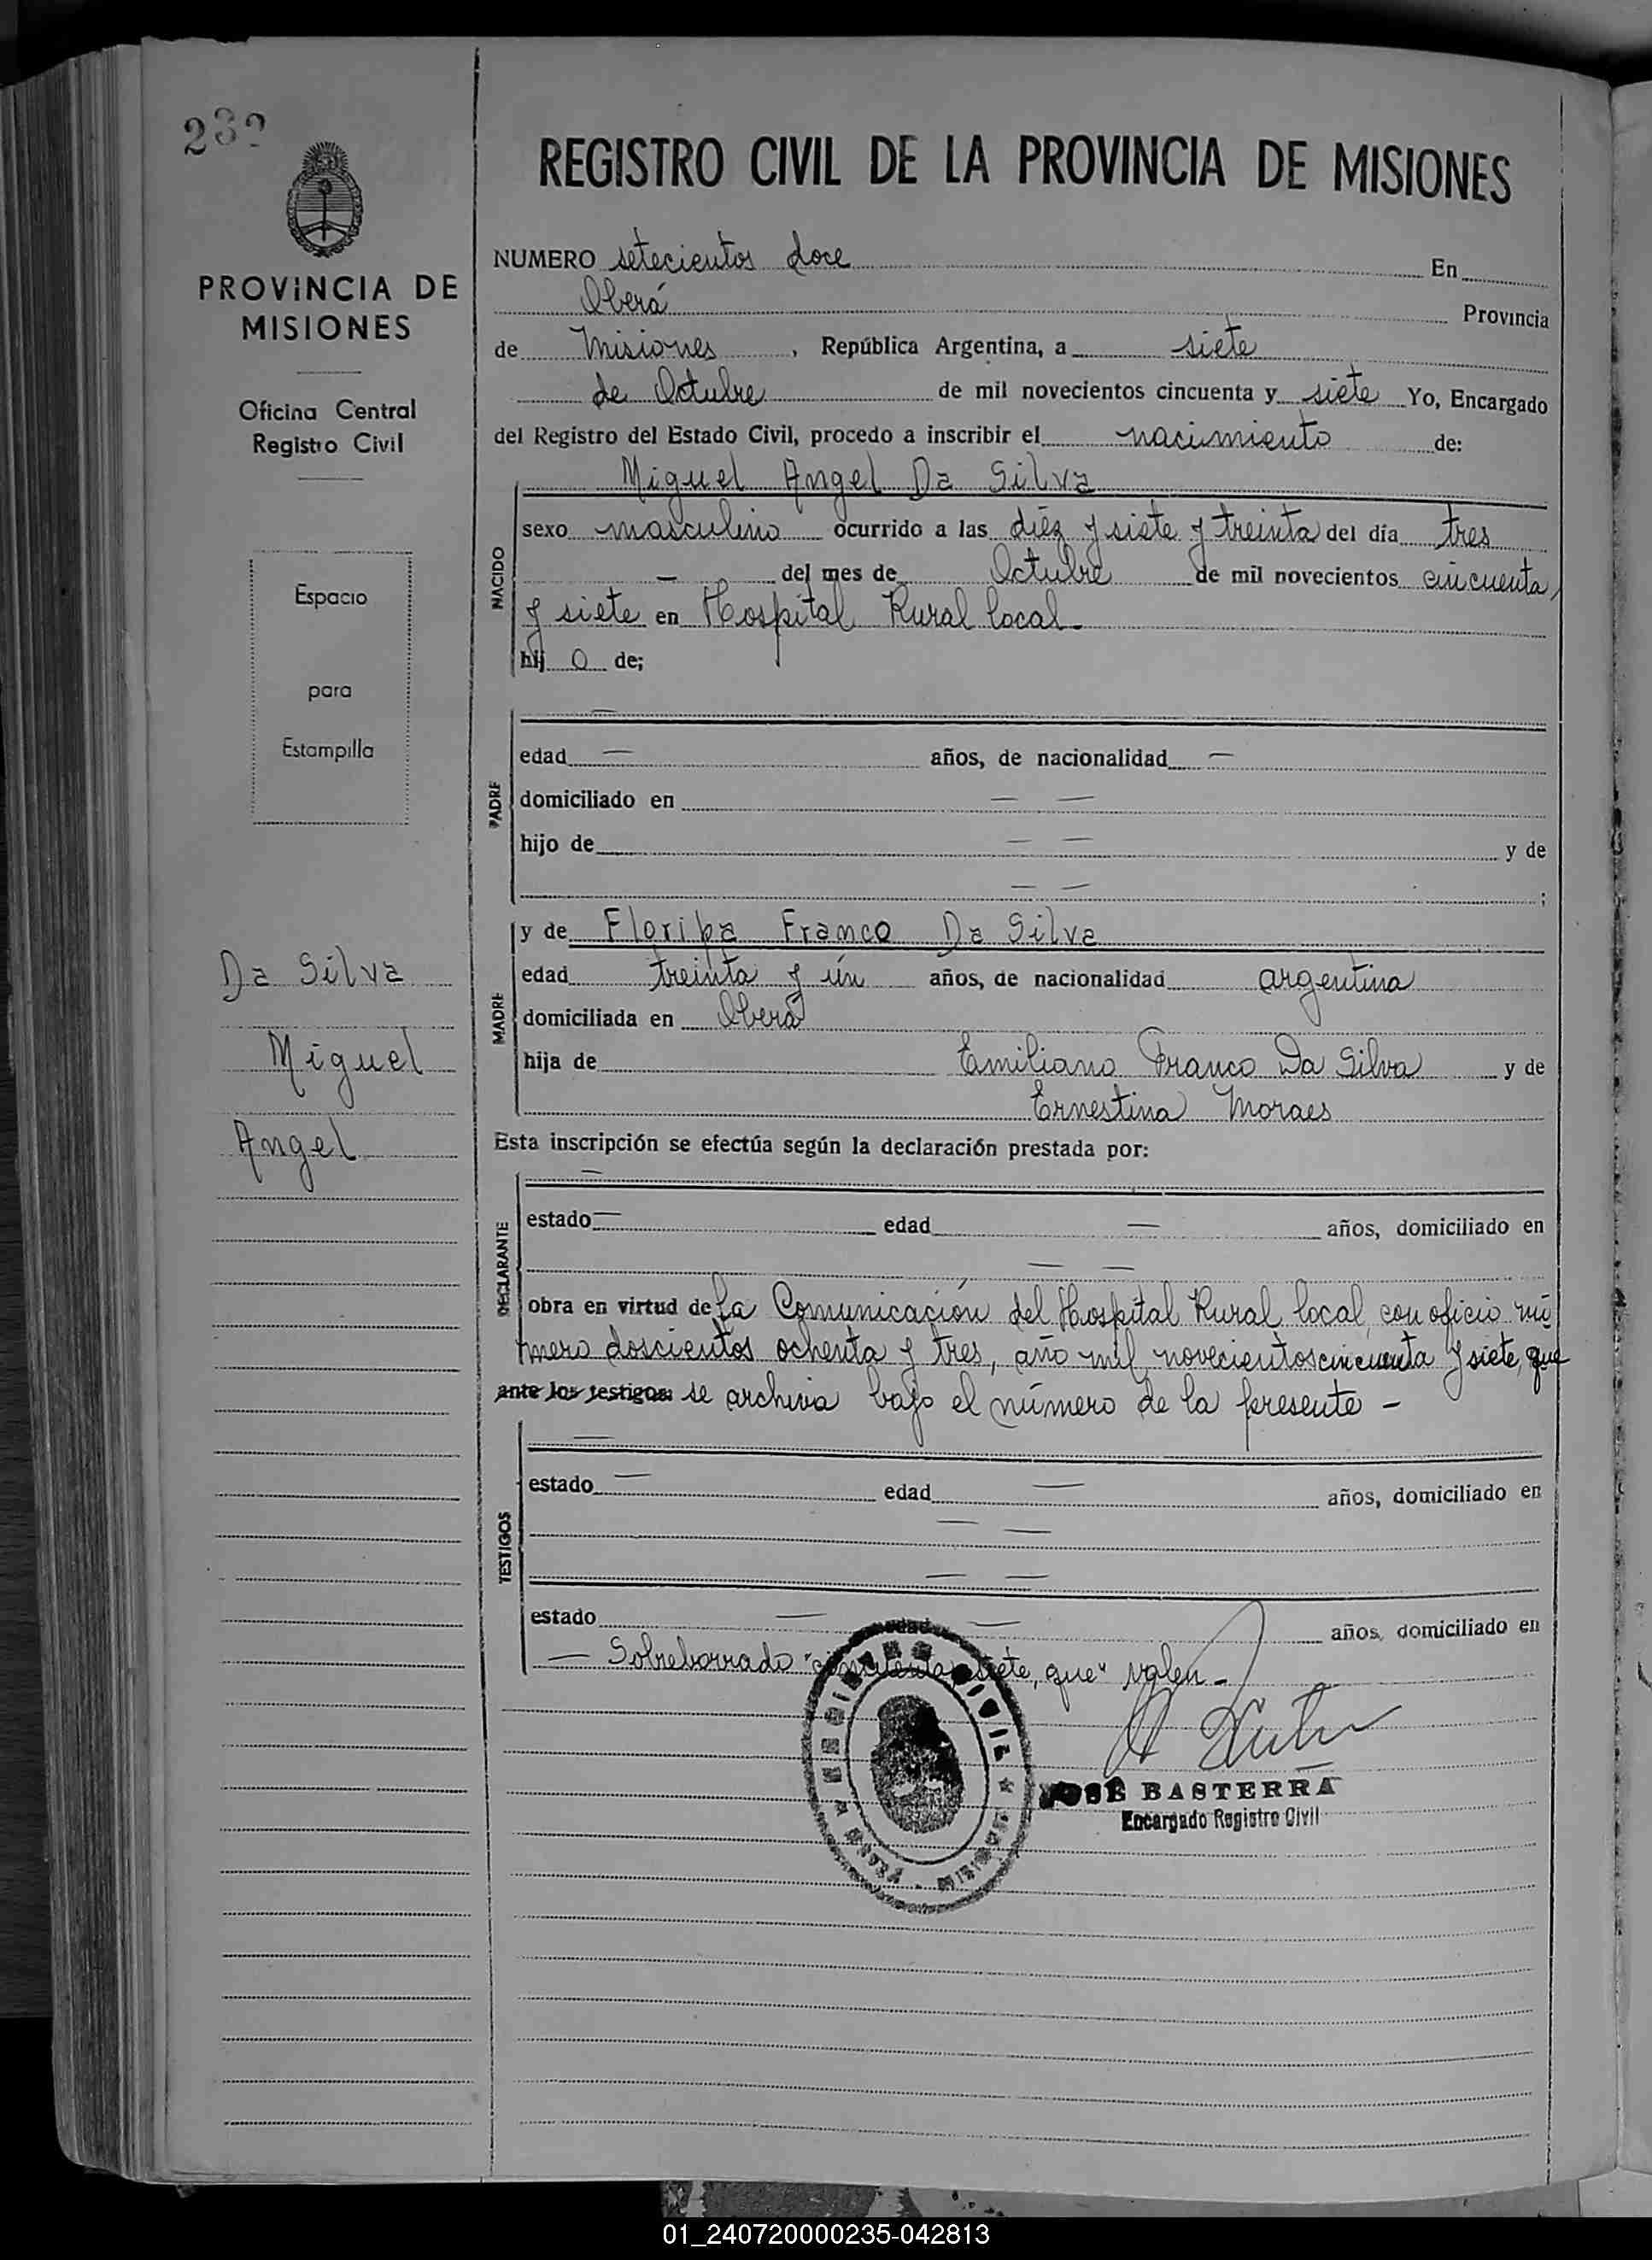 232
PROVINCIA DE
MISIONES
Oficina Central
Registro Civil
Espacio
para
Estampilla
Da Silva
Miguel
Angel
REGISTRO CIVIL DE LA PROVINCIA DE MISIONES
NUMERO setecientos doce En
Oberá Provincia
de Misiones, República Argentina, a siete
de Octubre de mil novecientos cincuenta y siete Yo, Encargado
del Registro del Estado Civil, procedo a inscribir el nacimiento de:
Miguel Angel Da Silva
NACIDO
sexo masculino ocurrido a las diéz y siete y treinta del día tres
— del mes de Octubre de mil novecientos cincuenta
y siete en Hospital Rural local.
hij o de;
PADRE
—
edad — años, de nacionalidad —
domiciliado en — —
hijo de — — y de
— — ;
MADRE
y de Floripa Franco Da Silva
edad treinta y ún años, de nacionalidad argentina
domiciliada en Oberá
hija de Emiliano Franco Da Silva y de
Ernestina Moraes
Esta inscripción se efectúa según la declaración prestada por:
DECLARANTE
—
estado — edad — años, domiciliado en
— —
obra en virtud de la Comunicación del Hospital Rural local, con oficio nú
mero doscientos ochenta y tres, año mil novecientos cincuenta y siete, que
ante los testigos: se archiva bajo el número de la presente -
TESTIGOS
—
estado — edad — años, domiciliado en
— —
— —
estado — edad — años, domiciliado en
— Sobreborrado "cincuenta y siete, que" valen -
REGISTRO CIVIL
MISIONES
JOSÉ BASTERRA
Encargado Registro Civil
01_240720000235-042813